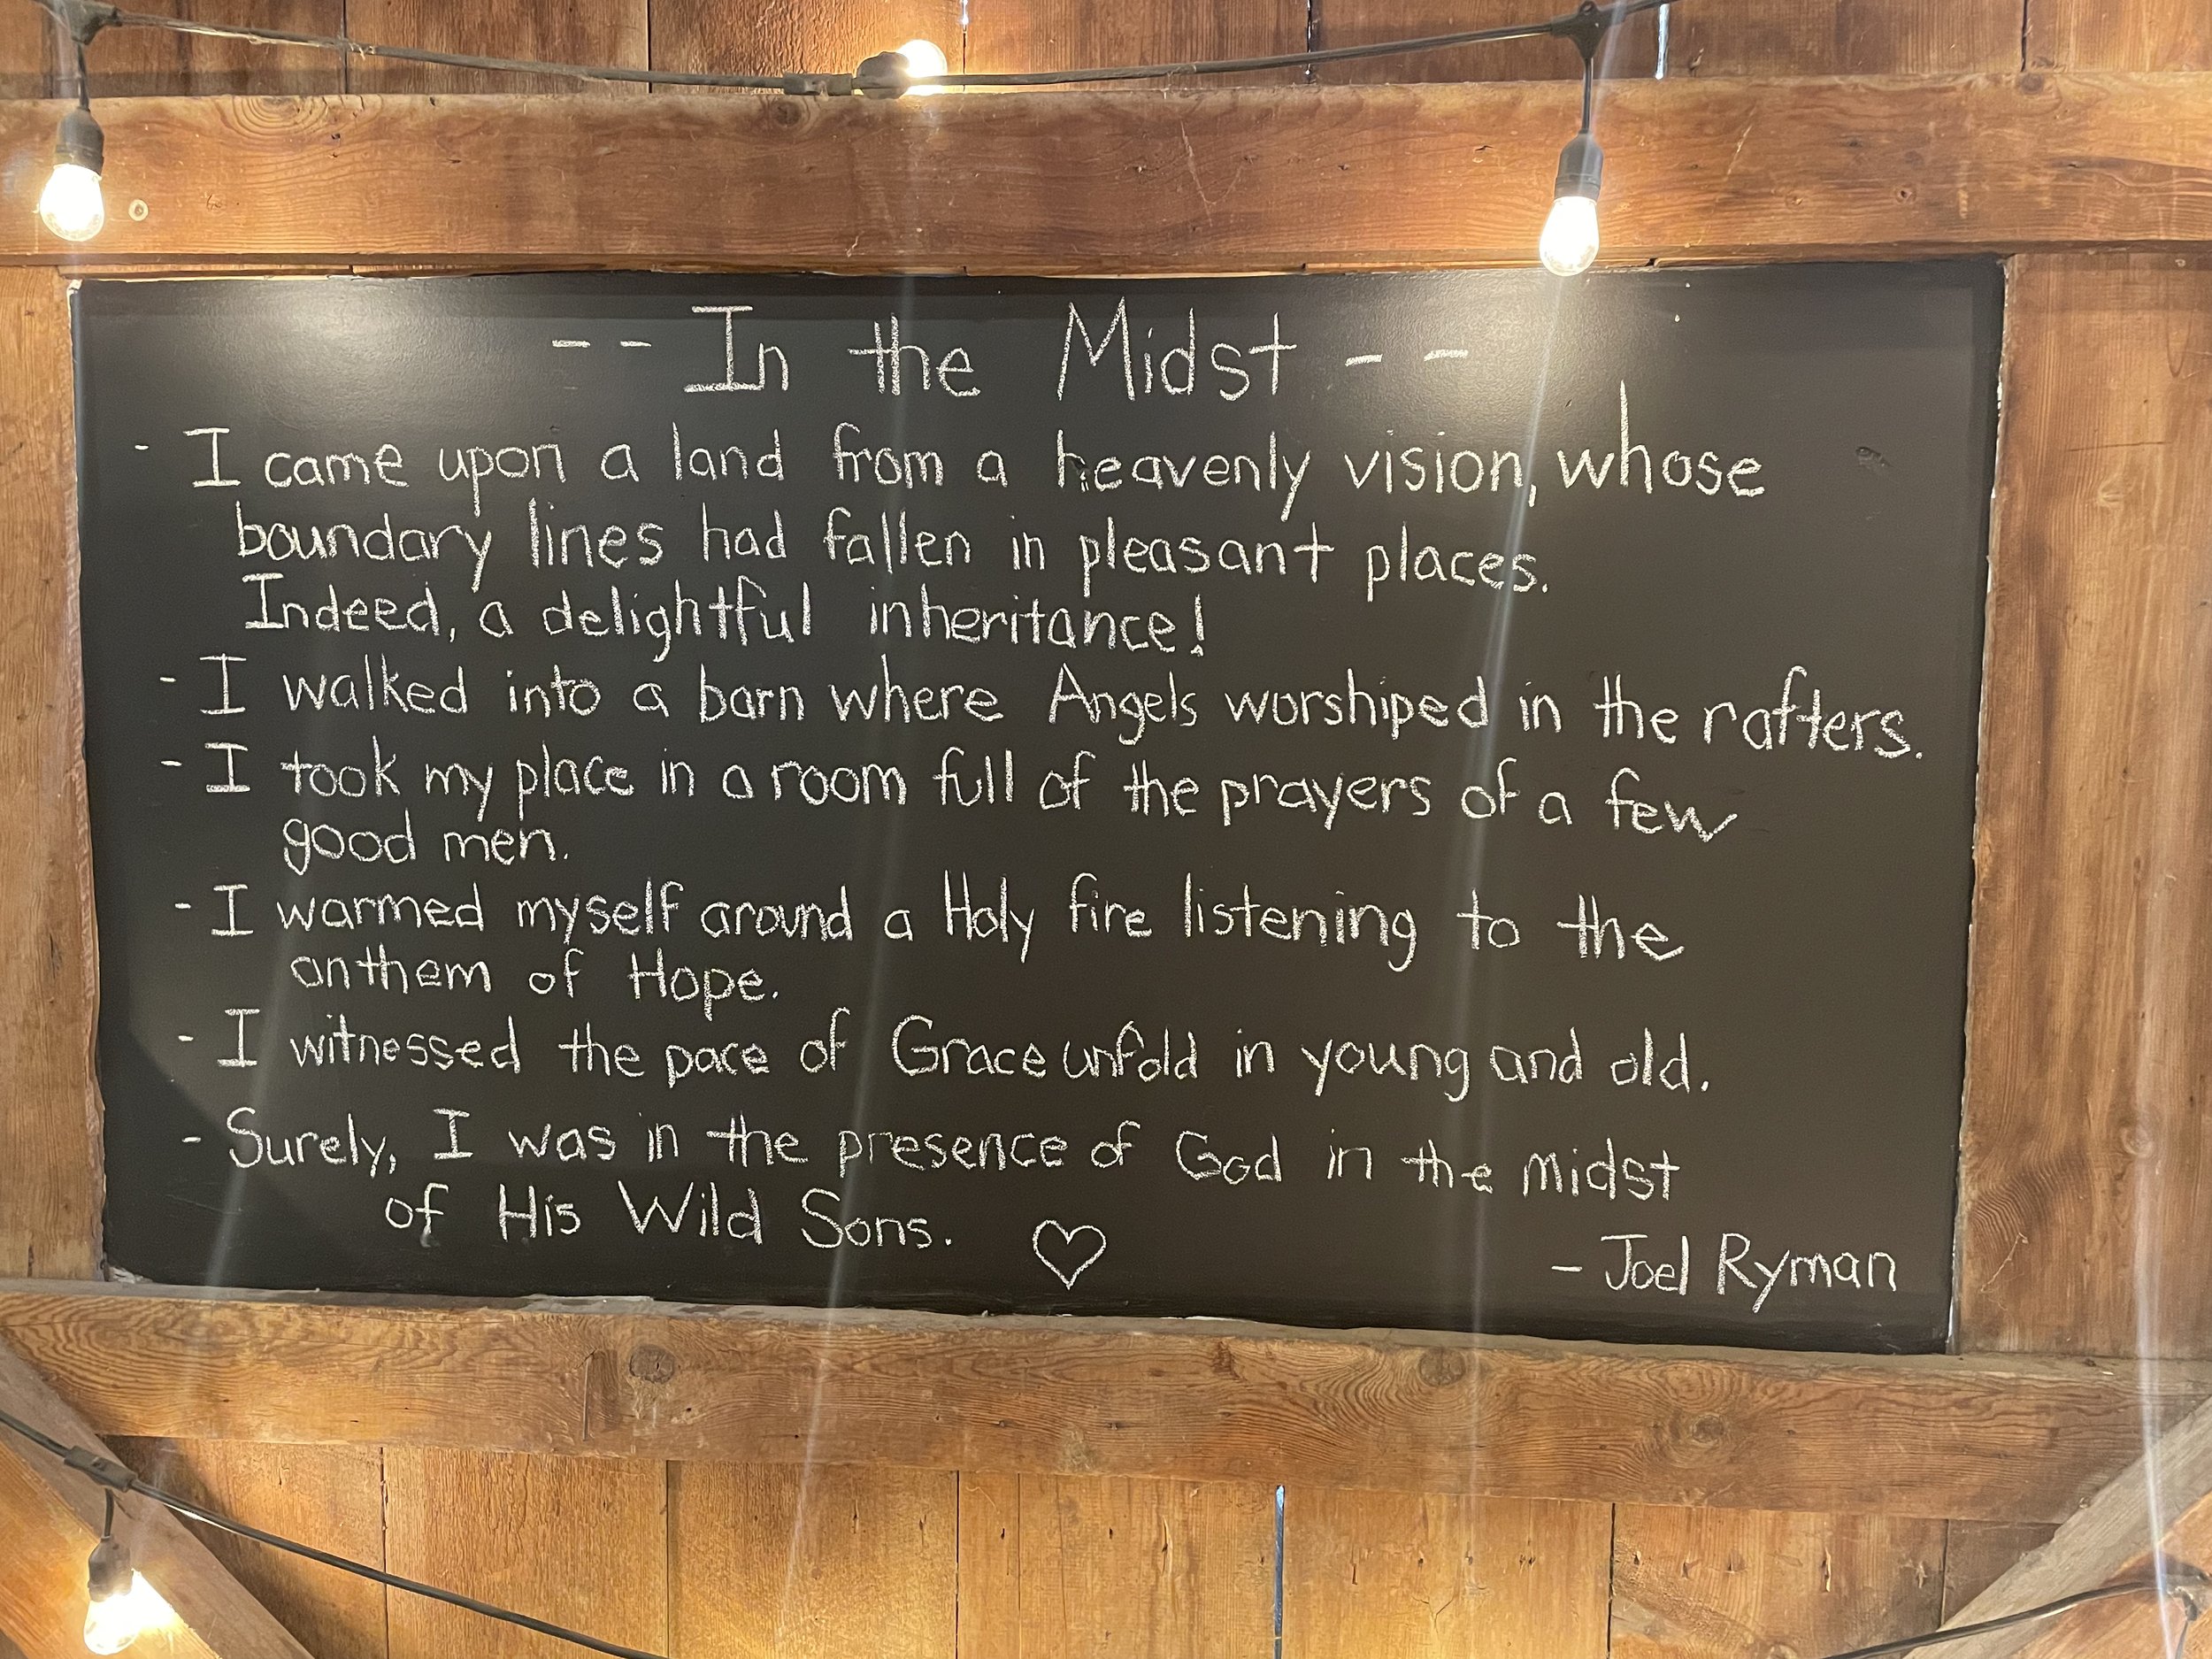 -- In the Midst --
- I came upon a land from a heavenly vision, whose
boundary lines had fallen in pleasant places.
Indeed, a delightful inheritance!
- I walked into a barn where Angels worshiped in the rafters.
- I took my place in a room full of the prayers of a few
good men.
- I warmed myself around a Holy fire listening to the
anthem of Hope.
- I witnessed the pace of Grace unfold in young and old.
- Surely, I was in the presence of God in the midst
of His Wild Sons. ♡
- Joel Ryman